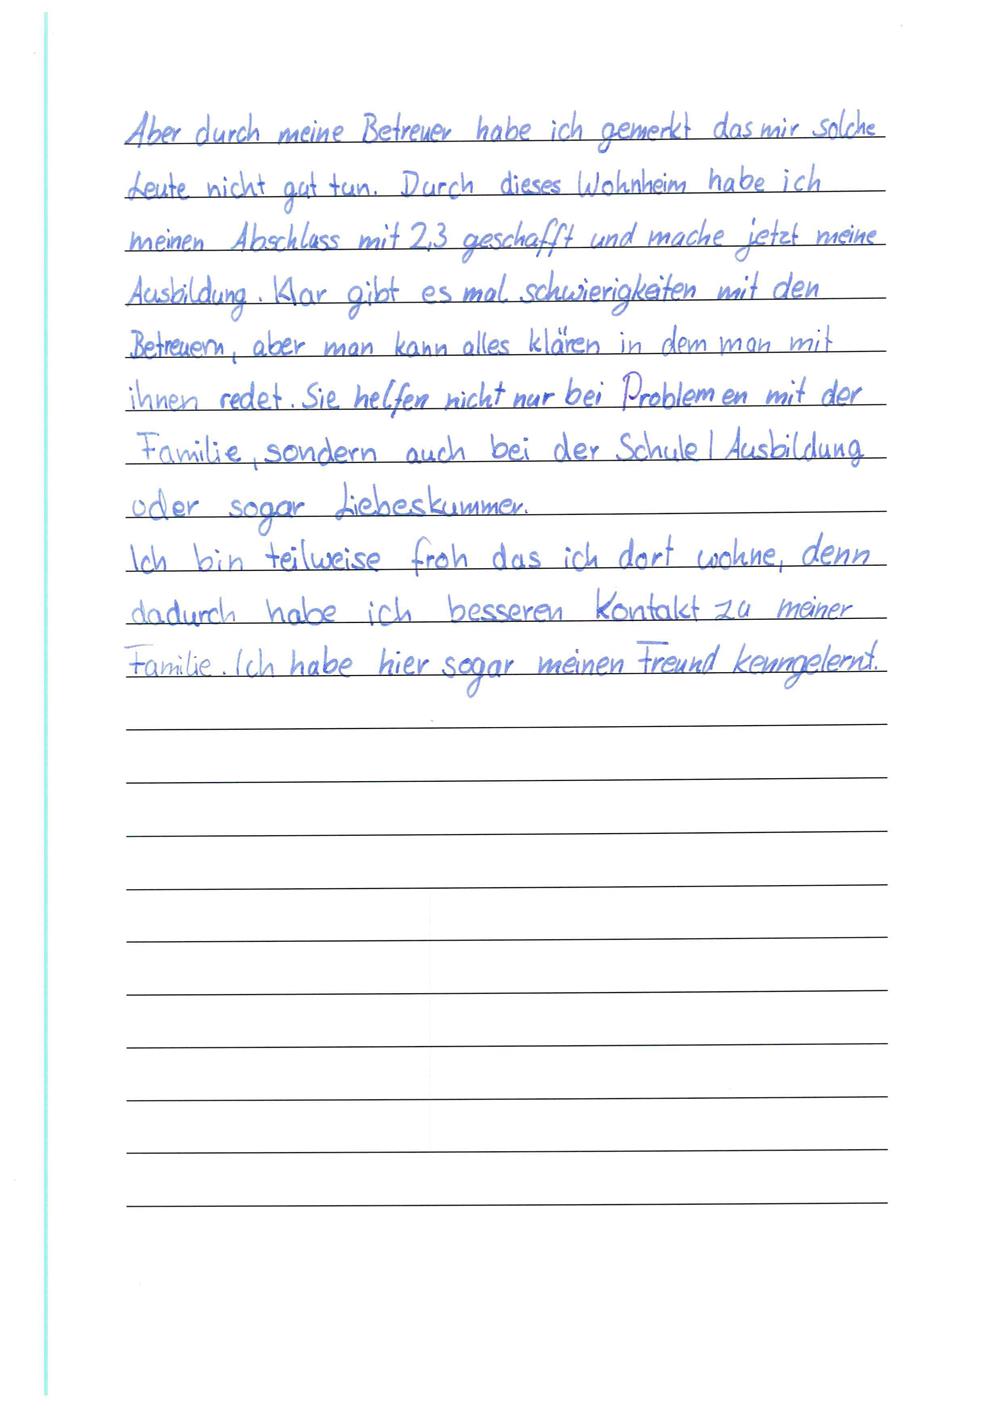 Aber durch meine Betreuer habe ich gemerkt das mir solche
Leute nicht gut tun. Durch dieses Wohnheim habe ich
meinen Abschluss mit 2,3 geschafft und mache jetzt meine
Ausbildung. Klar gibt es mal schwierigkeiten mit den
Betreuern, aber man kann alles klären in dem man mit
ihnen redet. Sie helfen nicht nur bei Problemen mit der
Familie, sondern auch bei der Schule / Ausbildung
oder sogar Liebeskummer.
Ich bin teilweise froh das ich dort wohne, denn
dadurch habe ich besseren Kontakt zu meiner
Familie. Ich habe hier sogar meinen Freund kenngelernt.